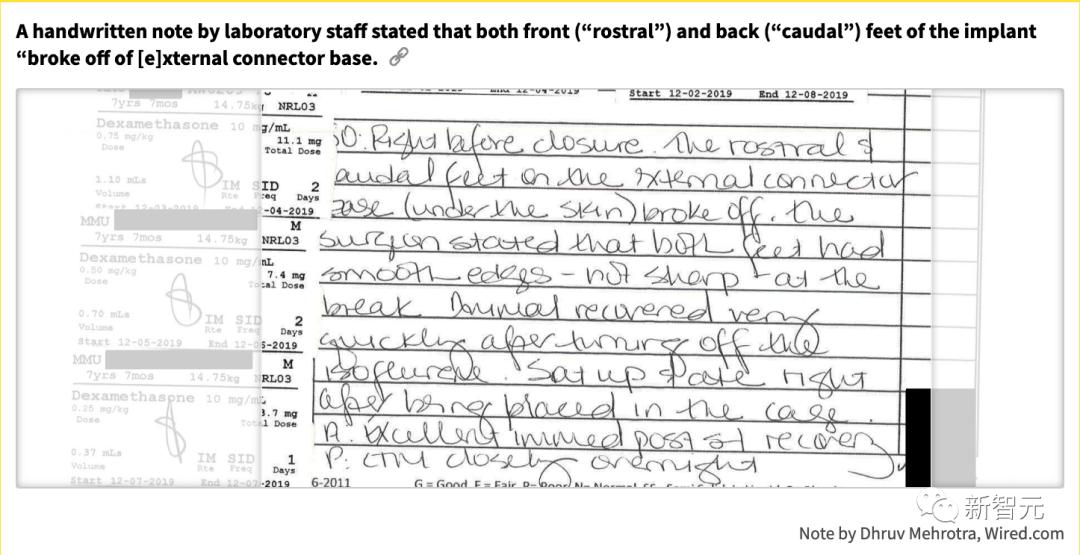 A handwritten note by laboratory staff stated that both front (“rostral”) and back (“caudal”) feet of the implant
“broke off of [e]xternal connector base.
7yrs 7mos 14.75kg NRL03
Start 12-02-2019 End 12-08-2019
Dexamethasone 10 mg/mL
0.75 mg/kg 11.1 mg
Dose Total Dose
1.10 mLs IM SID 2
Volume Rte Freq Days
-04-2019
MMU M
7yrs 7mos 14.75kg NRL03
Dexamethasone 10 mg/mL
0.50 mg/kg 7.4 mg
Dose Total Dose
0.70 mLs IM SID 2
Volume Rte Freq Days
Start 12-05-2019 End 12-06-2019
MMU M
7yrs 7mos 14.75kg RL03
Dexamethasone 10 mg/m
0.25 mg/kg 3.7 mg
Dose Total Dose
0.37 mLs IM SID 1
Volume Rte Freq Days
Start 12-07-2019 End 12-07-2019
O: Right before closure. The rostral &
audal feet on the external connector
ase (under the skin) broke off. The
surgeon stated that both feet had
smooth edges - not sharp - at the
break Animal recovered very
quickly after turning off the
isoflurane. Sat up & ate right
after being placed in the cage.
A: Excellent immed post recovery
P: CTM closely overnight
6-2011 G = Good F = Fair P= Poor N= Normal
新智元
Note by Dhruv Mehrotra, Wired.com